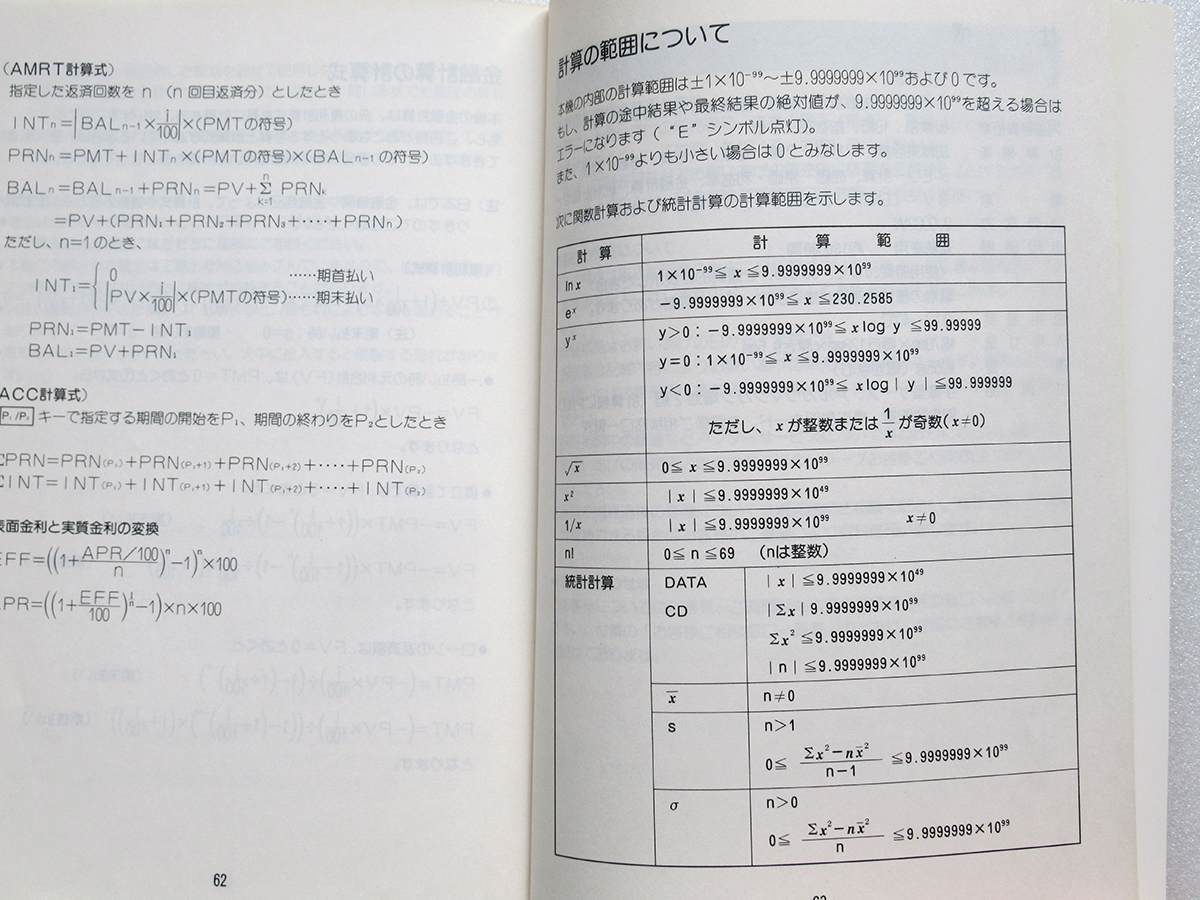 (AMRT計算式)
指定した返済回数をn (n回目返済分)としたとき
INTn=|BALn-1×i/100|×(PMTの符号)
PRNn=PMT+INTn×(PMTの符号)×(BALn-1の符号)
BALn=BALn-1+PRNn=PV+Σ PRNk
n
k=1
=PV+(PRN1+PRN2+PRN3+‥‥+PRNn)
ただし、n=1のとき、
INT1={0 ……期首払い
|PV×i/100|×(PMTの符号)……期末払い
PRN1=PMT-INT1
BAL1=PV+PRN1
ACC計算式)
P1/P2 キーで指定する期間の開始をP1、期間の終わりをP2としたとき
ΣPRN=PRN(P1)+PRN(P1+1)+PRN(P1+2)+‥‥+PRN(P2)
ΣINT=INT(P1)+INT(P1+1)+INT(P1+2)+‥‥+INT(P2)
表面金利と実質金利の変換
EFF=((1+APR/100/n)^n-1)^n×100
APR=((1+EFF/100)^1/n-1)×n×100
62
計算の範囲について
本機の内部の計算範囲は±1×10⁻⁹⁹~±9.9999999×10⁹⁹および0です。
もし、計算の途中結果や最終結果の絶対値が、9.9999999×10⁹⁹を超える場合は
エラーになります(“E”シンボル点灯)。
また、1×10⁻⁹⁹よりも小さい場合は0とみなします。
次に関数計算および統計計算の計算範囲を示します。
計算 計算範囲
ln x 1×10⁻⁹⁹≦ x ≦9.9999999×10⁹⁹
eˣ -9.9999999×10⁹⁹≦ x ≦230.2585
yˣ y>0:-9.9999999×10⁹⁹≦ xlog y ≦99.99999
y=0:1×10⁻⁹⁹≦ x ≦9.9999999×10⁹⁹
y<0:-9.9999999×10⁹⁹≦ xlog|y|≦99.999999
ただし、xが整数または1/xが奇数(x≠0)
√x 0≦ x ≦9.9999999×10⁹⁹
x² |x|≦9.9999999×10⁴⁹
1/x |x|≦9.9999999×10⁹⁹ x≠0
n! 0≦ n ≦69 (nは整数)
統計計算 DATA |x|≦9.9999999×10⁴⁹
CD |Σx|9.9999999×10⁹⁹
Σx²≦9.9999999×10⁹⁹
|n|≦9.9999999×10⁹⁹
x̄ n≠0
s n>1
0≦ Σx²-nx̄²/n-1 ≦9.9999999×10⁹⁹
σ n>0
0≦ Σx²-nx̄²/n ≦9.9999999×10⁹⁹